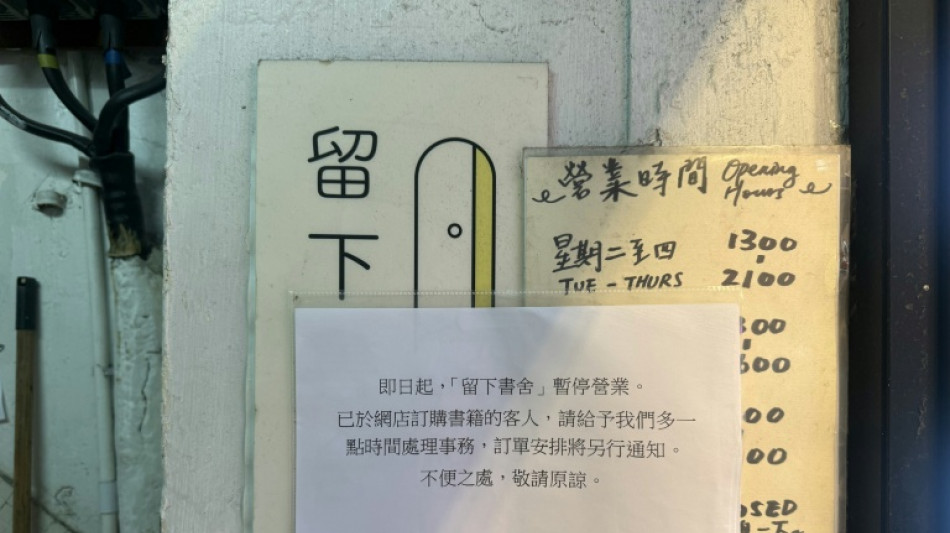 留
下
營業時間 Opening Hours
星期二至四 1300
TUE - THURS 2100
即日起，「留下書舍」暫停營業。
已於網店訂購書籍的客人，請給予我們多一
點時間處理事務，訂單安排將另行通知。
不便之處，敬請原諒。